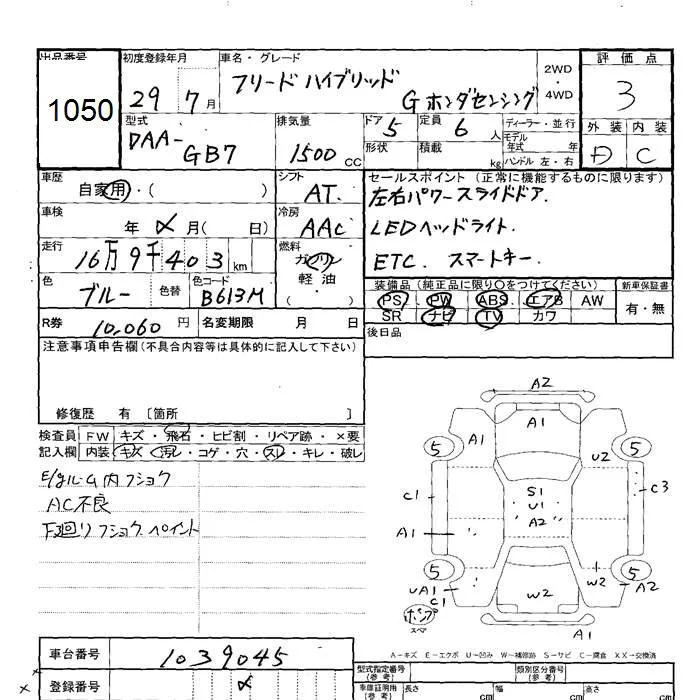 出品番号
1050
初度登録年月
29 7月
車名・グレード
フリード ハイブリッド
G ホンダセンシング
2WD
・
4WD
評価点
3
型式
DAA-
GB7
排気量
1500 CC
ドア 5
定員 6 人
形状
積載 kg
ディーラー・並行
モデル年式 年
ハンドル 左・右
外装 内装
D C
車歴
自家用・( )
シフト
AT.
セールスポイント (正常に機能するものに限ります)
左右パワースライドドア.
LEDヘッドライト.
ETC. スマートキー.
車検
年 月( 日)
冷房
AAC
走行
16万9千403 km
燃料
ガソリン
軽油
( )
色
ブルー
色替
色コード
B613M
装備品 (純正品に限り○をつけてください)
PS PW ABS エアB AW
SR ナビ TV カワ
新車保証書
有・無
R券 10,060 円
名変期限 月 日
後日品
注意事項申告欄(不具合内容等は具体的に記入して下さい)
修復歴 有 〔箇所 〕
検査員 FW キズ・飛石・ヒビ割・リペア跡・×要
記入欄 内装 キズ・汚れ・コゲ・穴・スレ・キレ・破レ
E/gルーム内フショク
AC不良
下廻りフショク ペイント
A2
A1
A1
5
5
U2
C1
S1
U1
A2
C3
A1
5
5
UA1
C1
W2
W2
A2
ポンプ
スペア
A1
A-キズ E-エクボ U-凹み W-補修跡 S-サビ C-腐食 XX→交換済
車台番号 1039045
登録番号
型式指定番号
(参考)
類別区分番号
(参考)
車庫証明用
(参考)
長さ cm
幅 cm
高さ cm